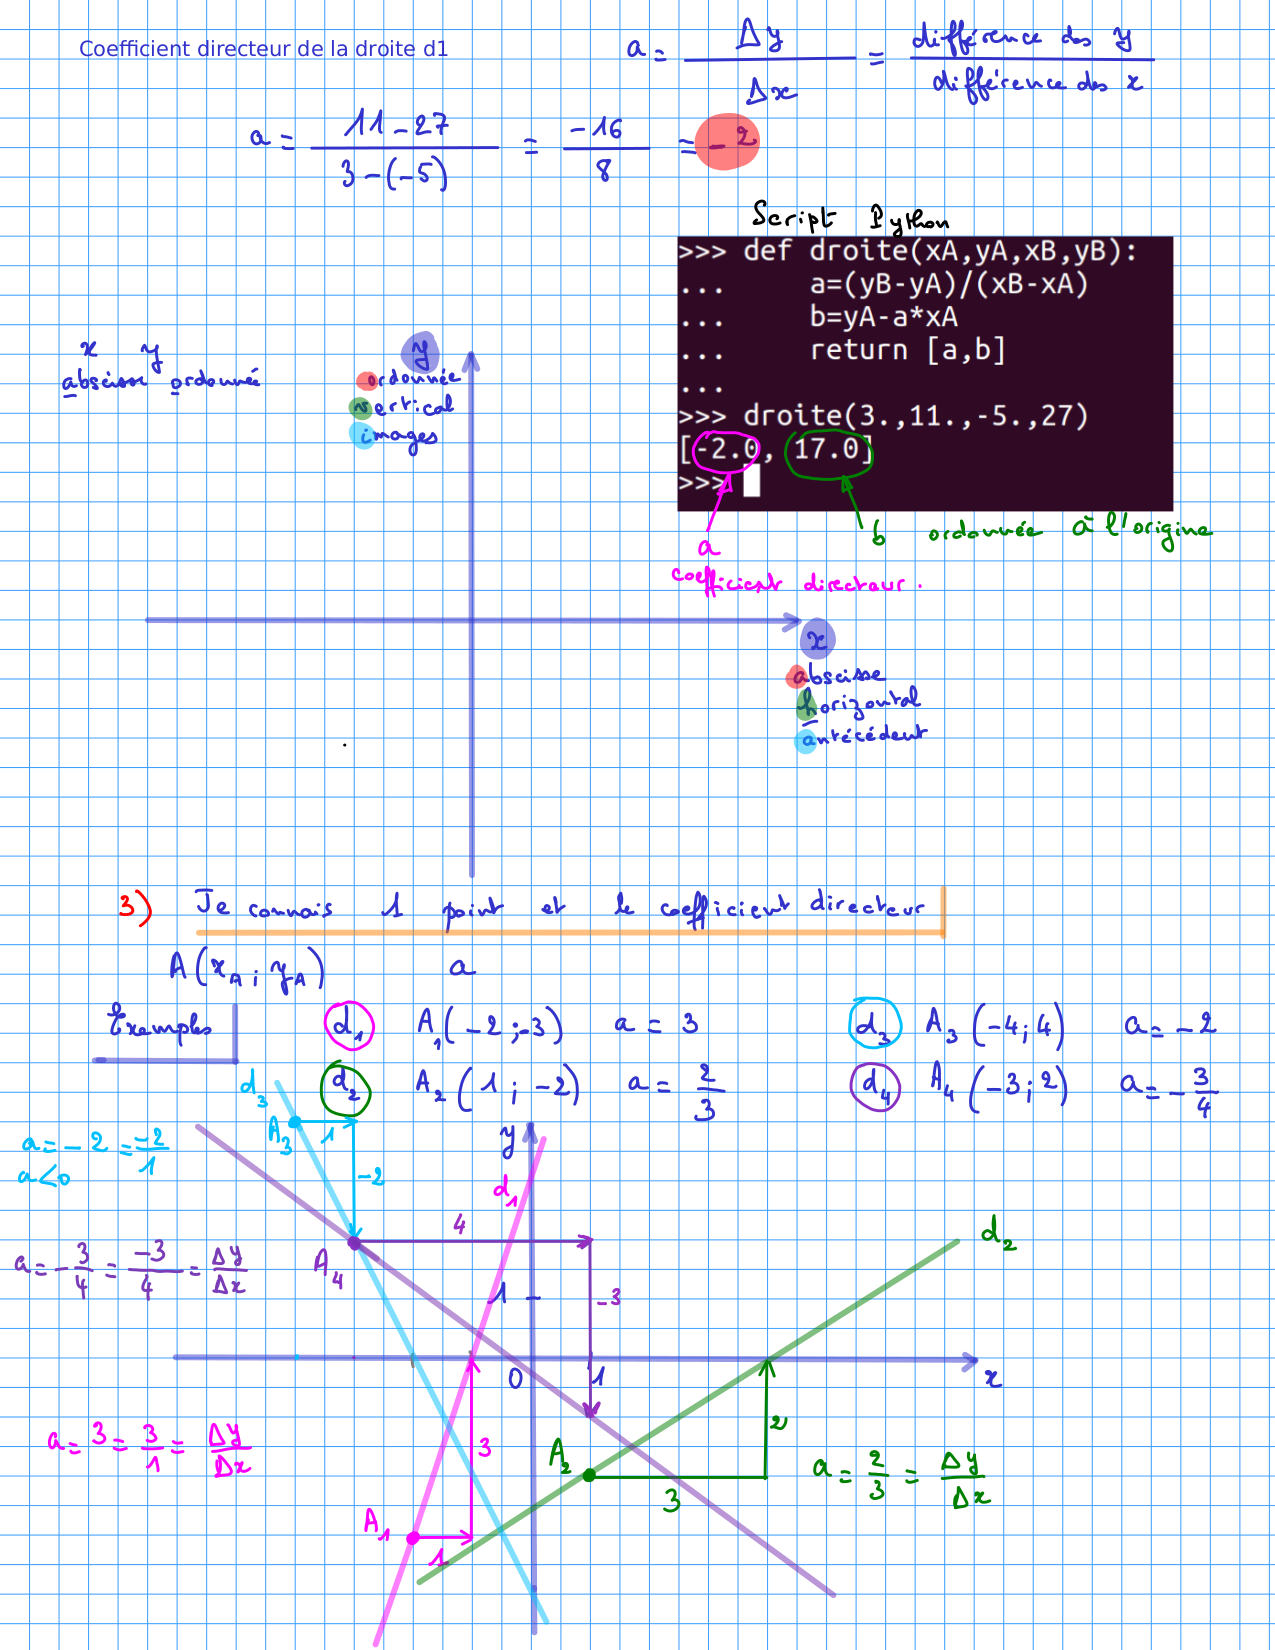 Coefficient directeur de la droite d1
a = Δy / Δx = différence des y / différence des x
a = 11-27 / 3-(-5) = -16 / 8 = -2
Script Python
>>> def droite(xA,yA,xB,yB):
...     a=(yB-yA)/(xB-xA)
...     b=yA-a*xA
...     return [a,b]
...
>>> droite(3.,11.,-5.,27)
[-2.0, 17.0]
>>>
a
coefficient directeur.
b ordonnée à l'origine
x y
abscisse ordonnée
y
ordonnée
vertical
images
x
abscisse
horizontal
antécédent
3) Je connais 1 point et le coefficient directeur
A(xA ; yA) a
Exemples
d1 A1(-2 ; -3) a = 3
d3 A3(-4 ; 4) a = -2
d2 A2(1 ; -2) a = 2/3
d4 A4(-3 ; 2) a = -3/4
d3
A3
1
-2
a = -2 = -2/1
a<0
y
d1
4
A4
-3
a = -3/4 = -3/4 = Δy/Δx
1
0
1
x
d2
a = 3 = 3/1 = Δy/Δx
3
A1
1
A2
3
2
a = 2/3 = Δy/Δx